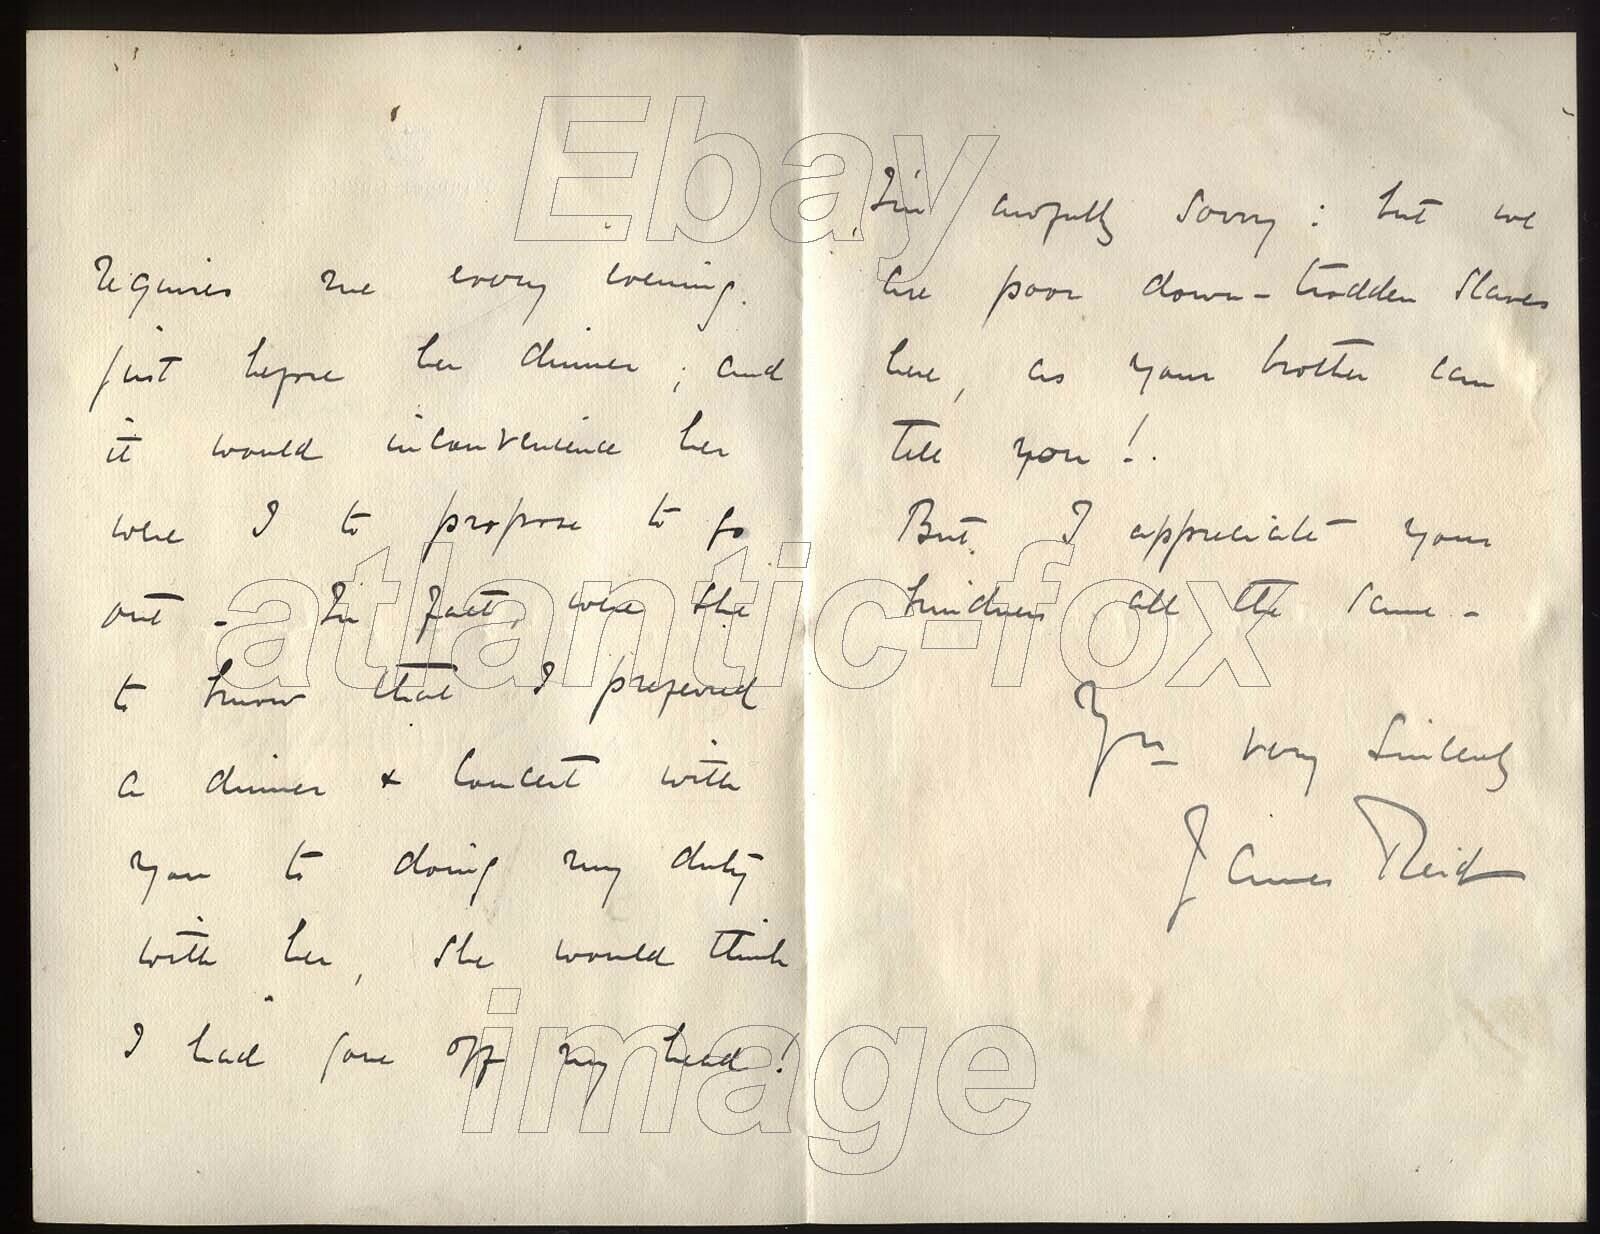 requires me every evening
just before her dinner ; and
it would inconvenience her
were I to propose to go
out - In fact, were she
to know that I preferred
a dinner & concert with
you to doing my duty
with her, she would think
I had gone off my head !
I'm awfully sorry : but we
are poor down-trodden slaves
here, as your brother can
tell you !
But I appreciate your
kindness all the same -
Yrs very sincerely
James Reid
Ebay
atlantic-fox
image